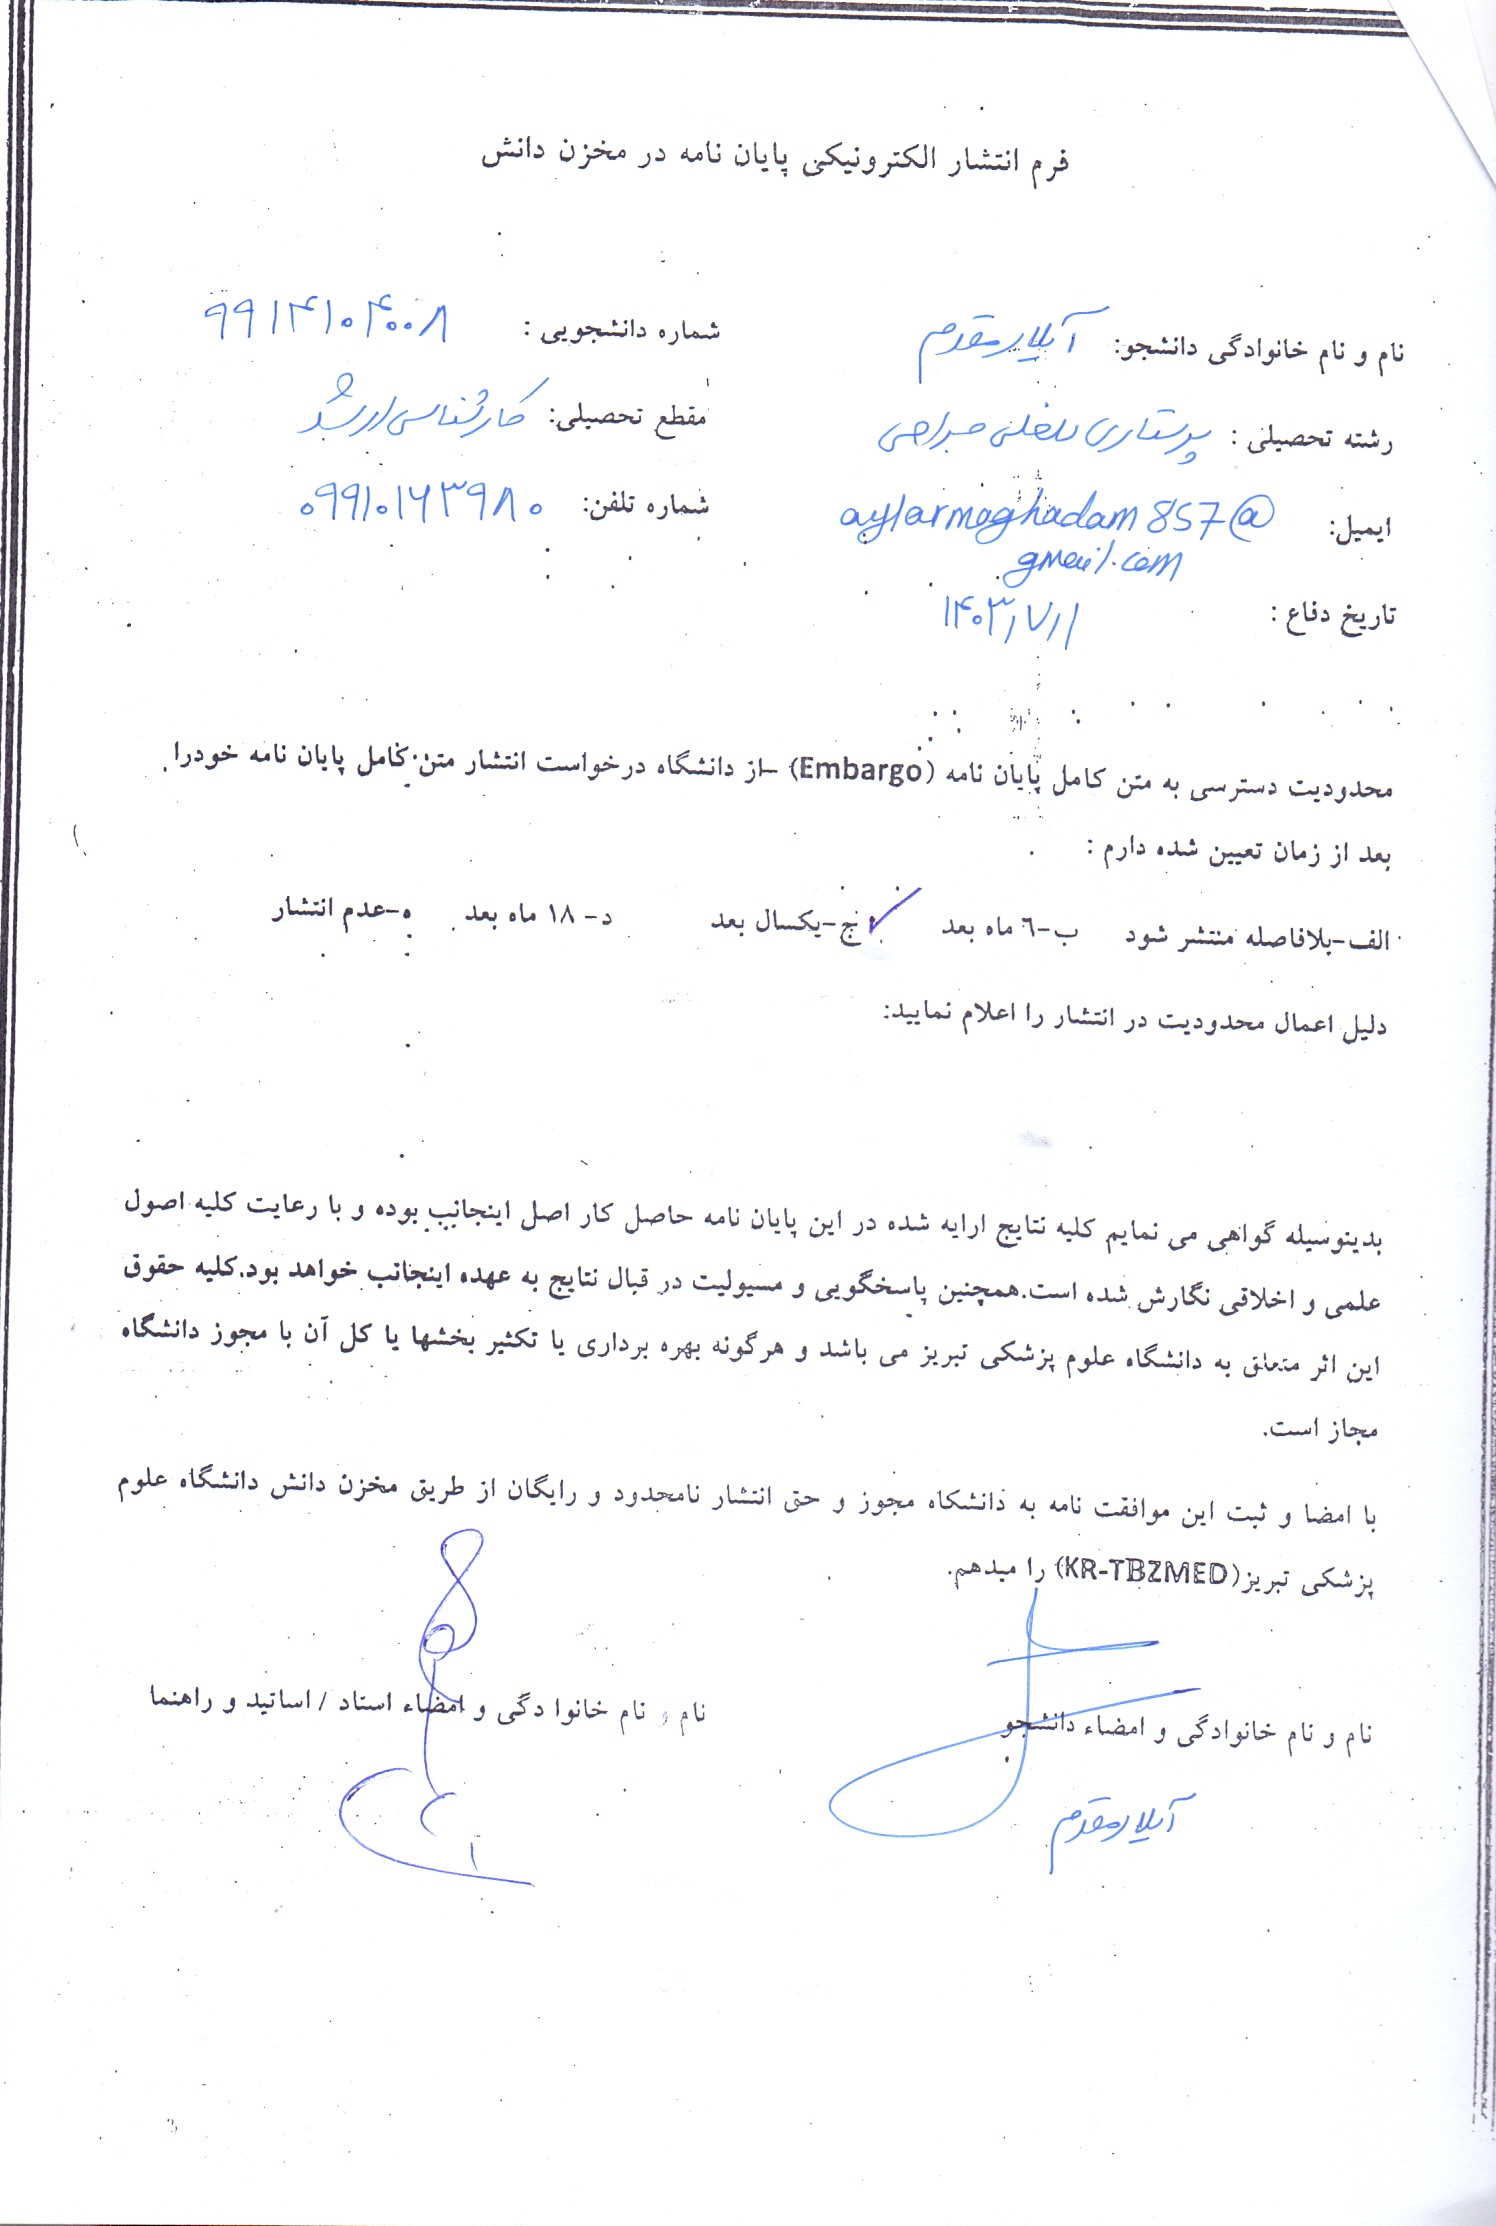 فرم انتشار الکترونیکی پایان نامه در مخزن دانش
نام و نام خانوادگی دانشجو: آیلار مقدم شماره دانشجویی : ۹۹۱۴۱۰۴۰۰۸
رشته تحصیلی : پرستاری داخلی جراحی مقطع تحصیلی: کارشناسی ارشد
ایمیل: aylarmoghadam857@ شماره تلفن: ۰۹۹۱۰۱۶۳۹۸۰
gmail.com
تاریخ دفاع : ۱۴۰۳/۷/۱
محدودیت دسترسی به متن کامل پایان نامه (Embargo) –از دانشگاه درخواست انتشار متن کامل پایان نامه خودرا
بعد از زمان تعیین شده دارم :
الف-بلافاصله منتشر شود ب-٦ ماه بعد ✓ ج-یکسال بعد د- ۱۸ ماه بعد ه-عدم انتشار
دلیل اعمال محدودیت در انتشار را اعلام نمایید:
بدینوسیله گواهی می نمایم کلیه نتایج ارایه شده در این پایان نامه حاصل کار اصل اینجانب بوده و با رعایت کلیه اصول
علمی و اخلاقی نگارش شده است.همچنین پاسخگویی و مسیولیت در قبال نتایج به عهده اینجانب خواهد بود.کلیه حقوق
این اثر متعلق به دانشگاه علوم پزشکی تبریز می باشد و هرگونه بهره برداری یا تکثیر بخشها یا کل آن با مجوز دانشگاه
مجاز است.
با امضا و ثبت این موافقت نامه به دانشگاه مجوز و حق انتشار نامحدود و رایگان از طریق مخزن دانش دانشگاه علوم
پزشکی تبریز(KR-TBZMED) را میدهم.
نام و نام خانوادگی و امضاء دانشجو نام و نام خانوادگی و امضاء استاد / اساتید و راهنما
آیلار مقدم